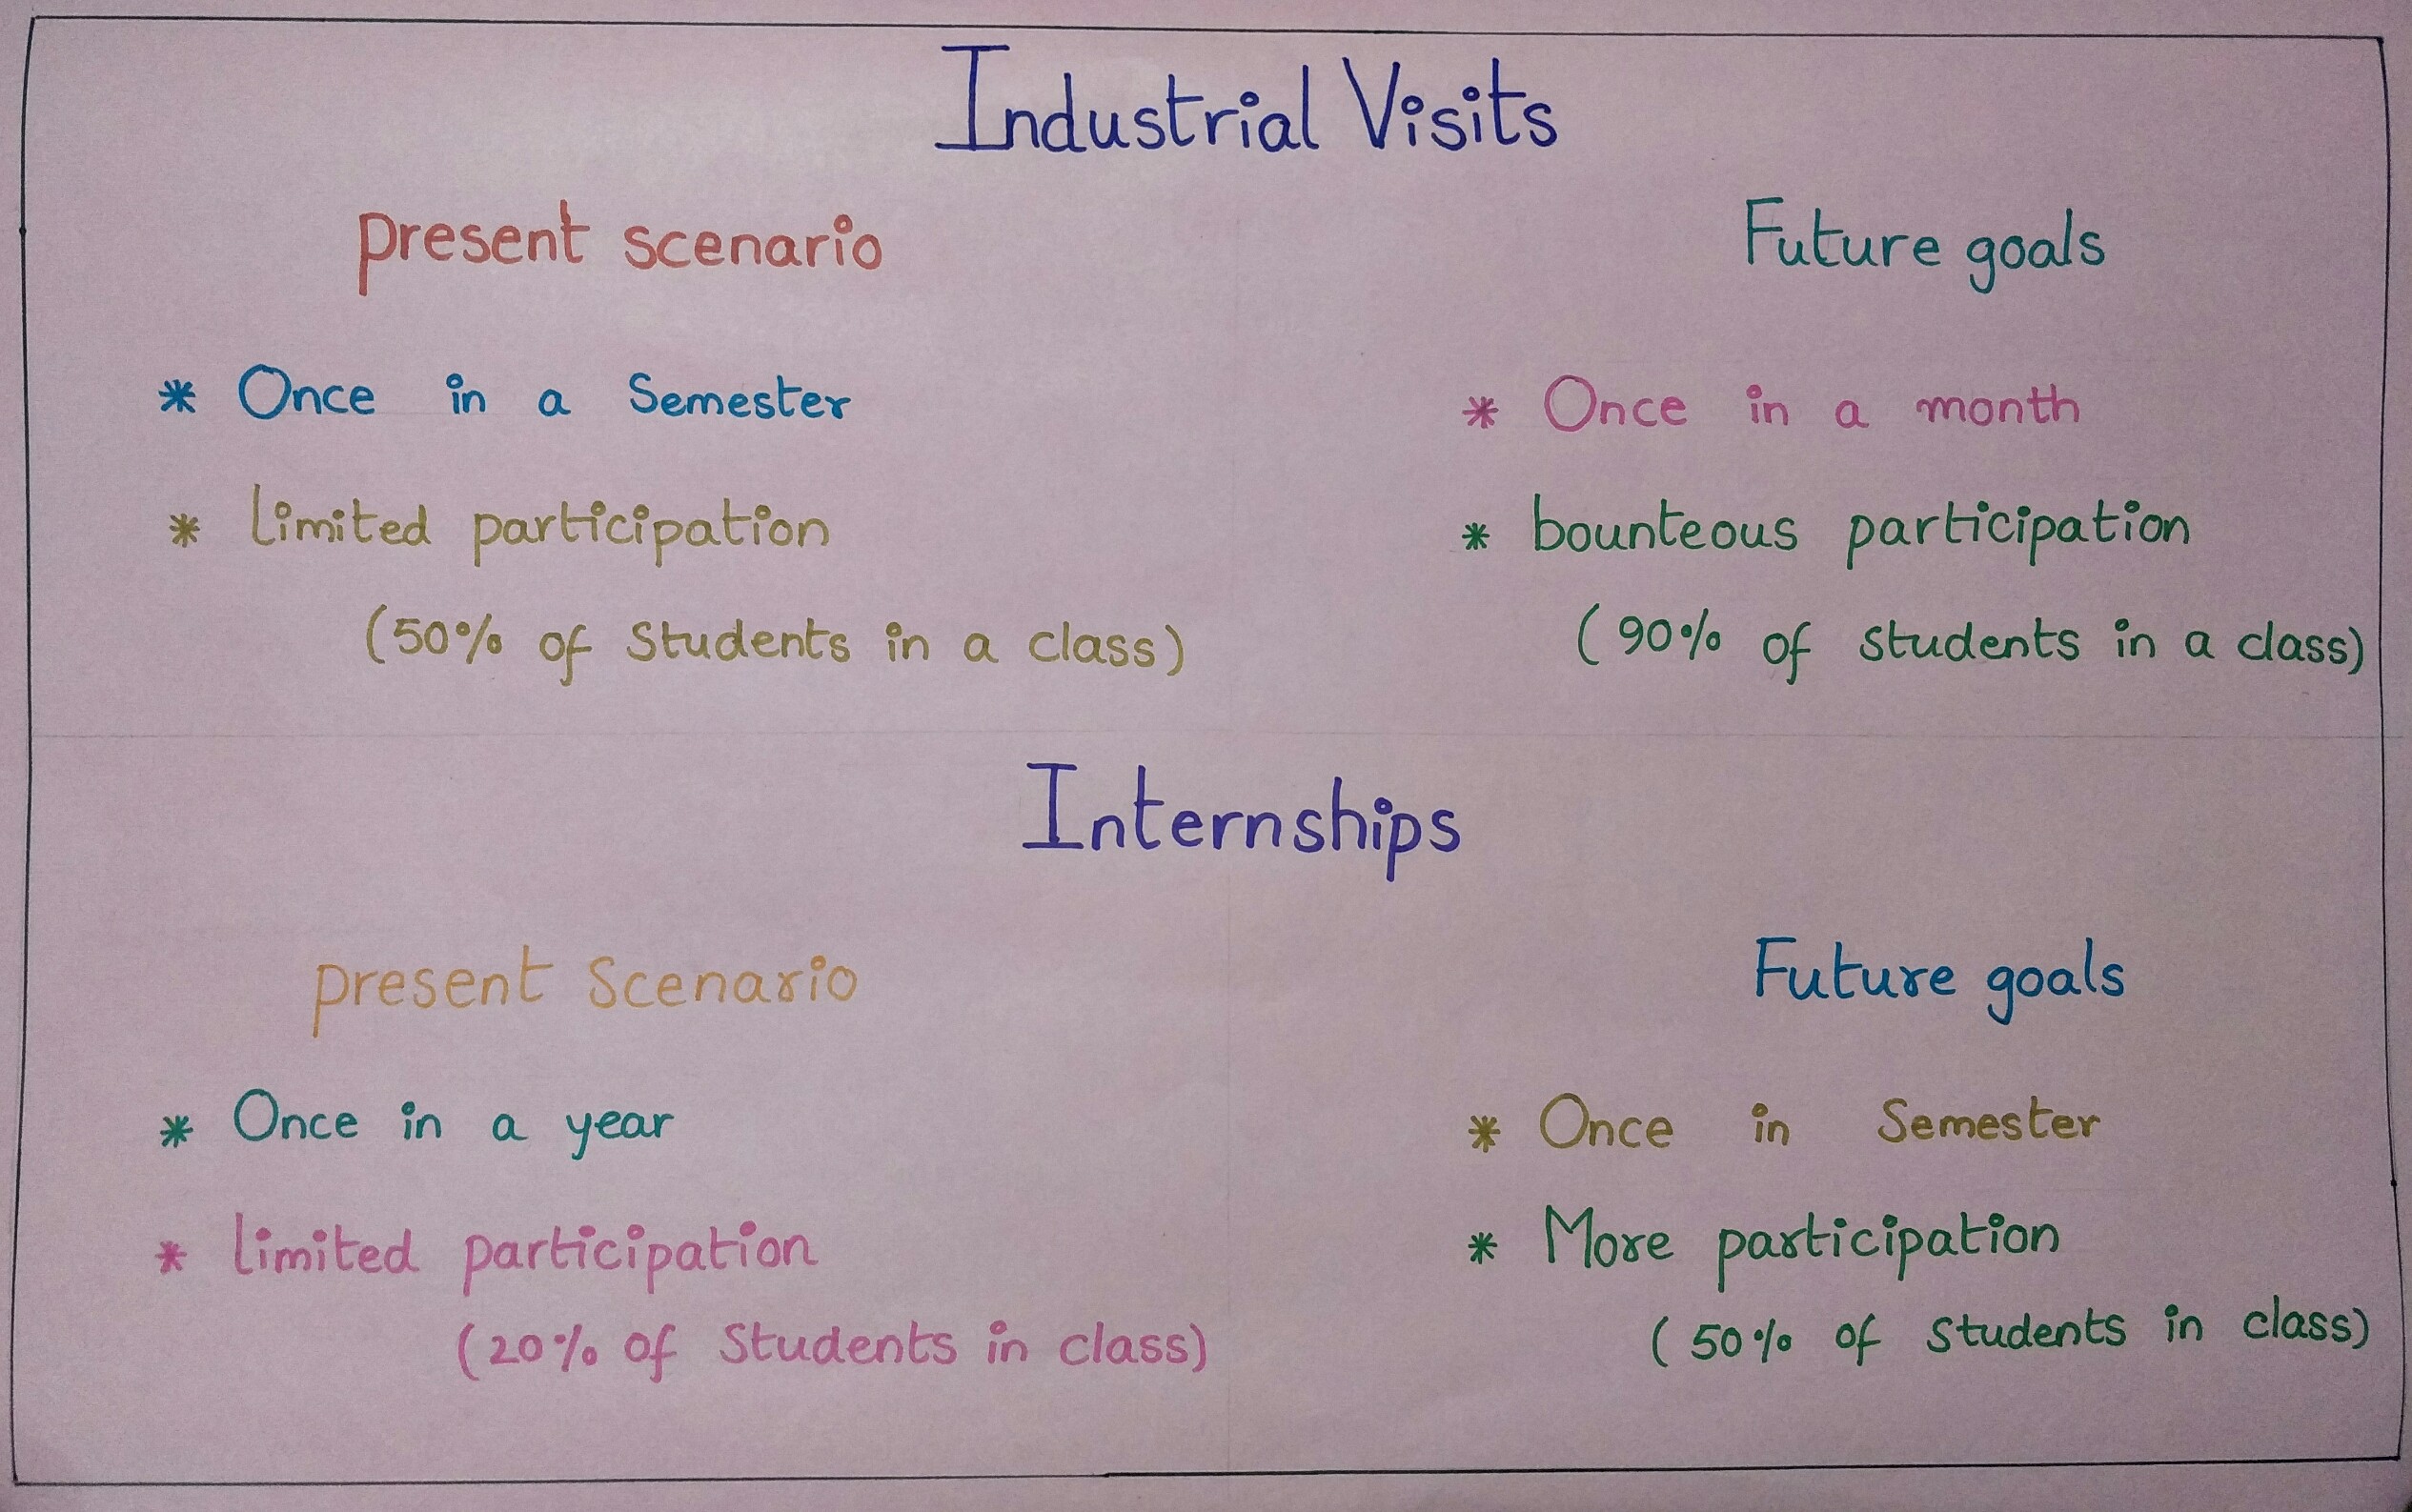 Industrial Visits
present scenario
* Once in a Semester
* limited participation
(50% of Students in a class)
Future goals
* Once in a month
* bounteous participation
(90% of students in a class)
Internships
present Scenario
* Once in a year
* limited participation
(20% of Students in class)
Future goals
* Once in Semester
* More participation
(50% of Students in class)